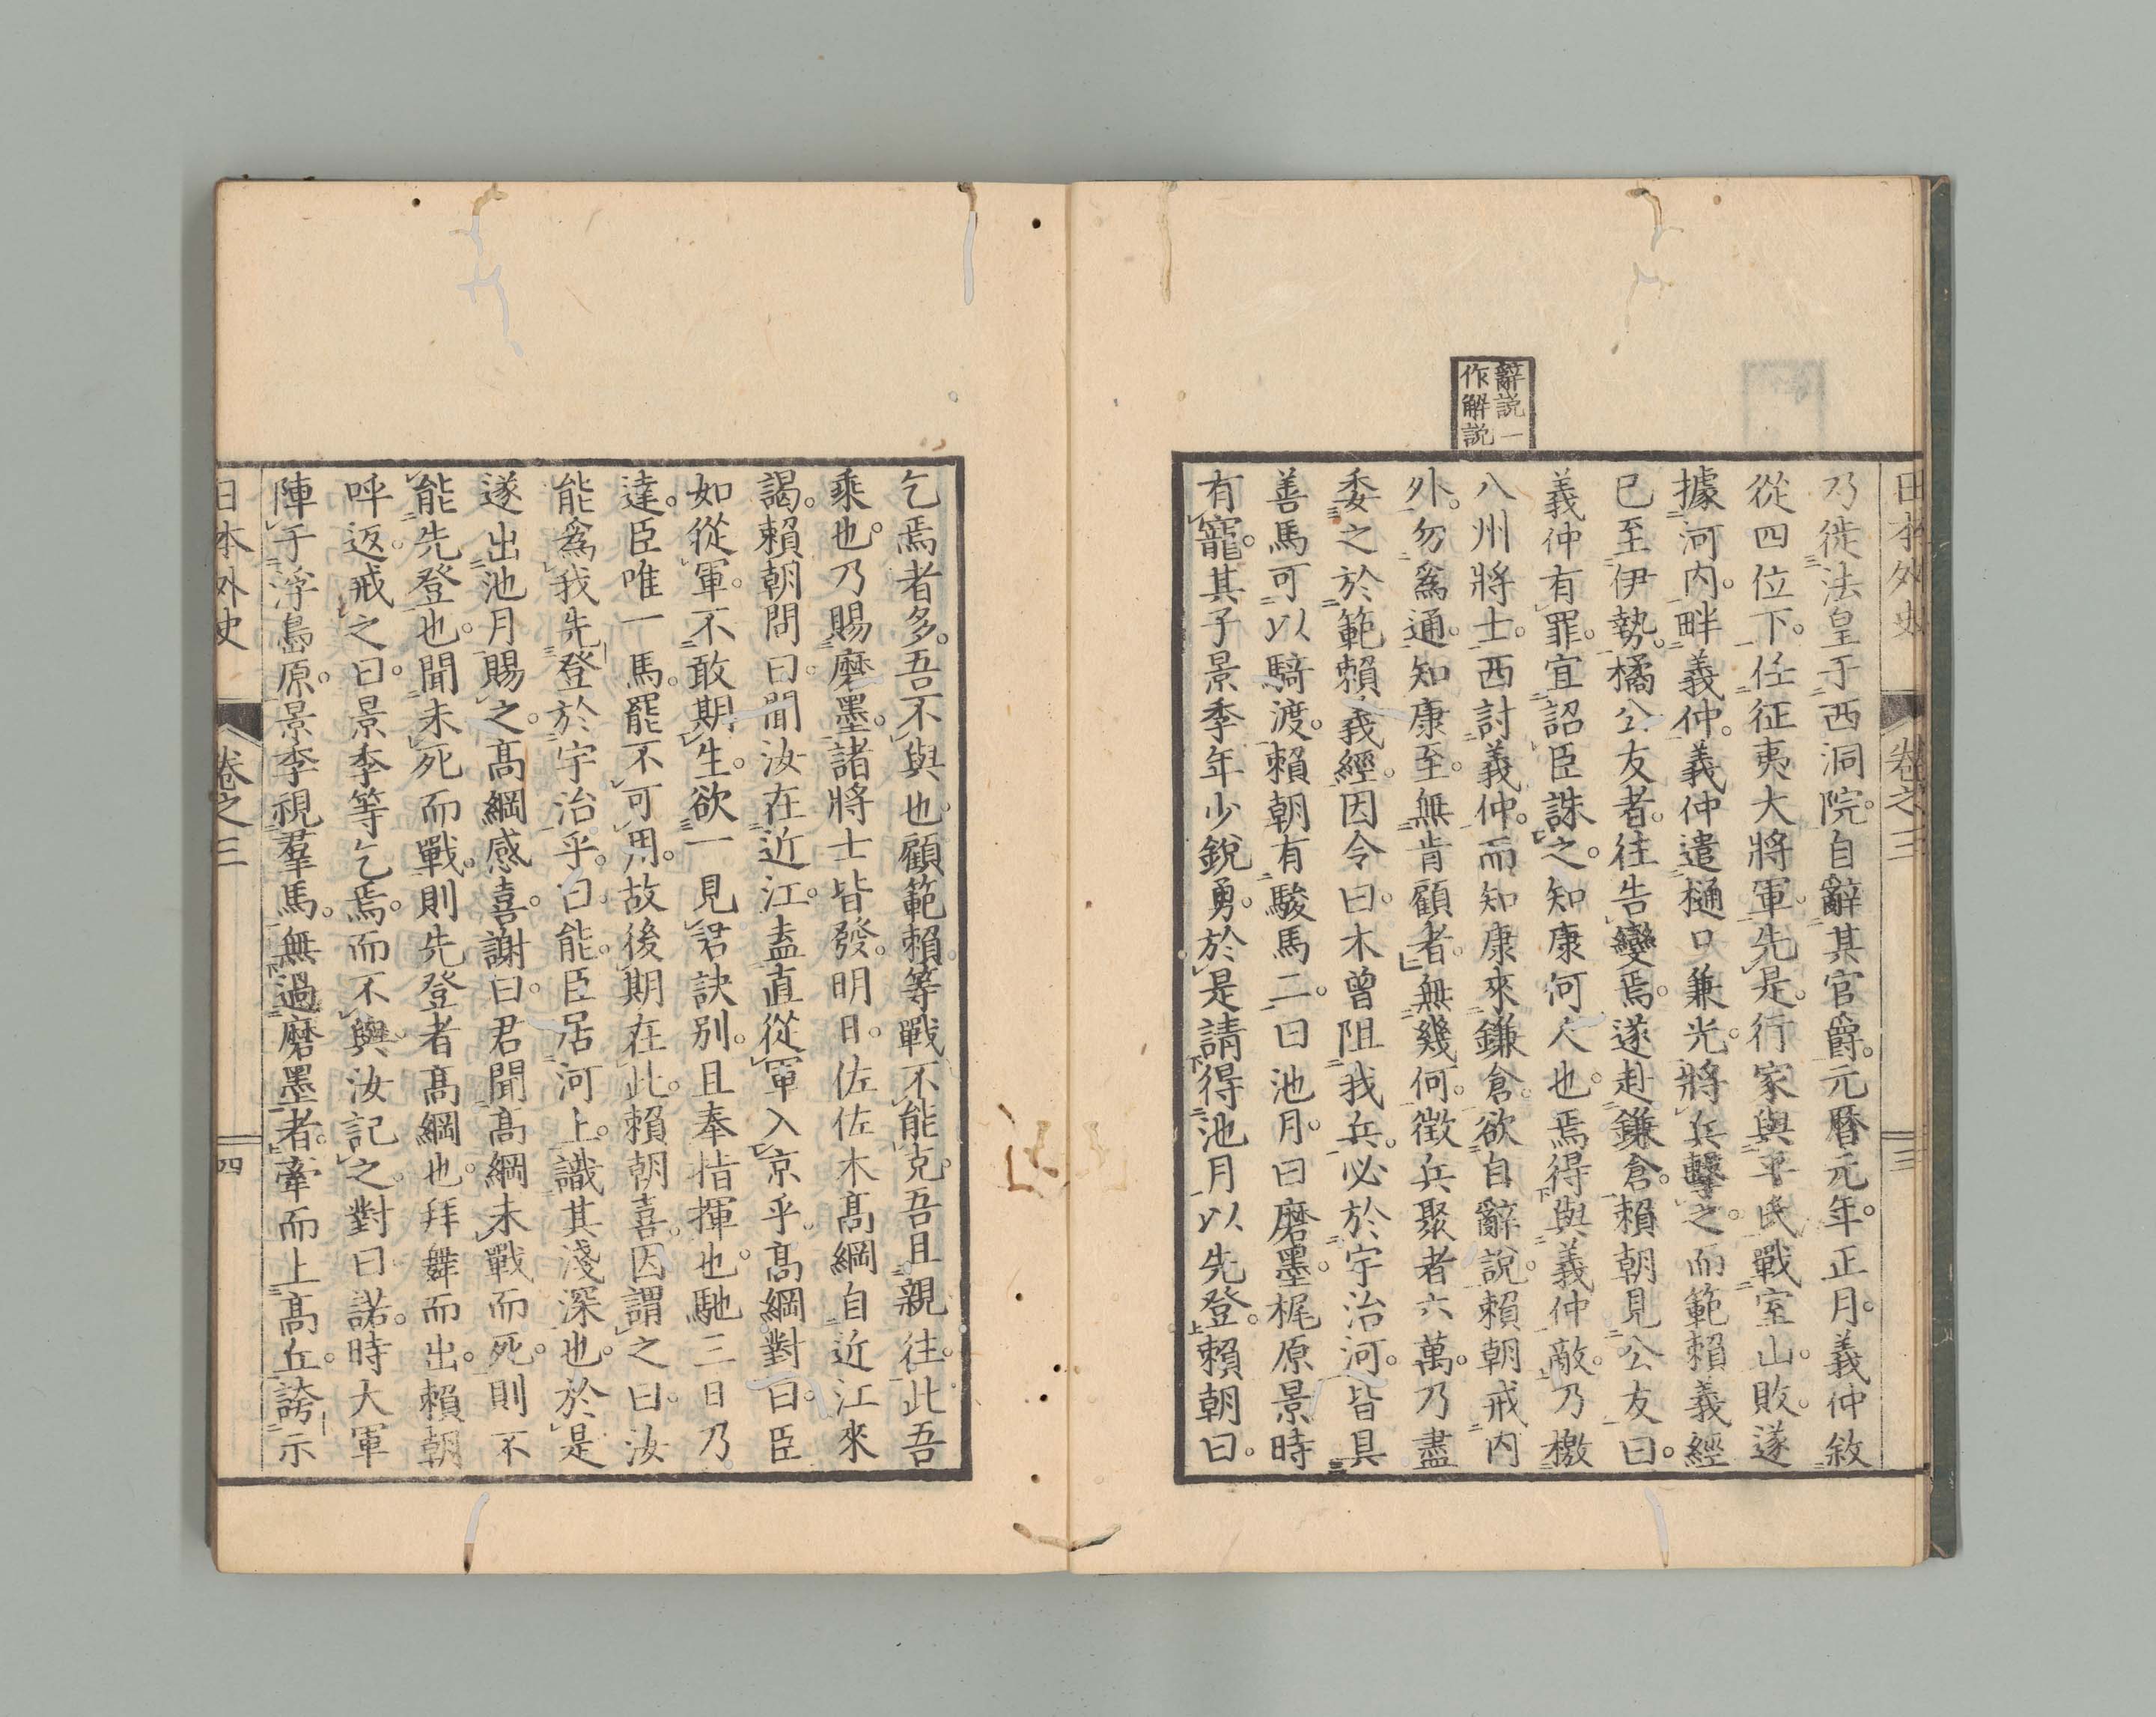 日本外史 卷之三 三
辭說一
作解說
乃徙法皇于西洞院。自辭其官爵。元曆元年。正月。義仲敘
從四位下。任征夷大將軍。先是。行家與平氏戰室山。敗。遂
據河內。畔義仲。義仲遣樋口兼光。將兵擊之。而範賴義經
已至伊勢。橘公友者。往告變焉。遂赴鎌倉。賴朝見公友曰。
義仲有罪。宜詔臣誅之。知康何人也。焉得與義仲敵。乃檄
八州將士。西討義仲。而知康來鎌倉。欲自辭說。賴朝戒內
外。勿爲通。知康至。無肯顧者。無幾何。徵兵聚者六萬。乃盡
委之於範賴義經。因令曰。木曾阻我兵。必於宇治河。皆具
善馬可以騎渡。賴朝有駿馬二。曰池月。曰磨墨。梶原景時
有寵。其子景季年少銳勇。於是請得池月以先登。賴朝曰。
乞焉者多。吾不與也。顧範賴等戰不能克。吾且親往。此吾
乘也。乃賜磨墨。諸將士皆發。明日。佐佐木高綱自近江來
謁。賴朝問曰。聞汝在近江。盍直從軍入京乎。高綱對曰。臣
如從軍。不敢期生。欲一見君訣別。且奉指揮也。馳三日乃
達。臣唯一馬。罷不可用。故後期在此。賴朝喜。因謂之曰。汝
能爲我先登於宇治乎。曰能。臣居河上。識其淺深也。於是
遂出池月賜之。高綱感喜。謝曰。君聞高綱未戰而死。則不
能先登也。聞未死而戰。則先登者高綱也。拜舞而出。賴朝
呼返。戒之曰。景季等乞焉。而不與。汝記之。對曰諾。時大軍
陣于浮島原。景季視羣馬。無過磨墨者。牽而上高丘。誇示
日本外史 卷之三 四